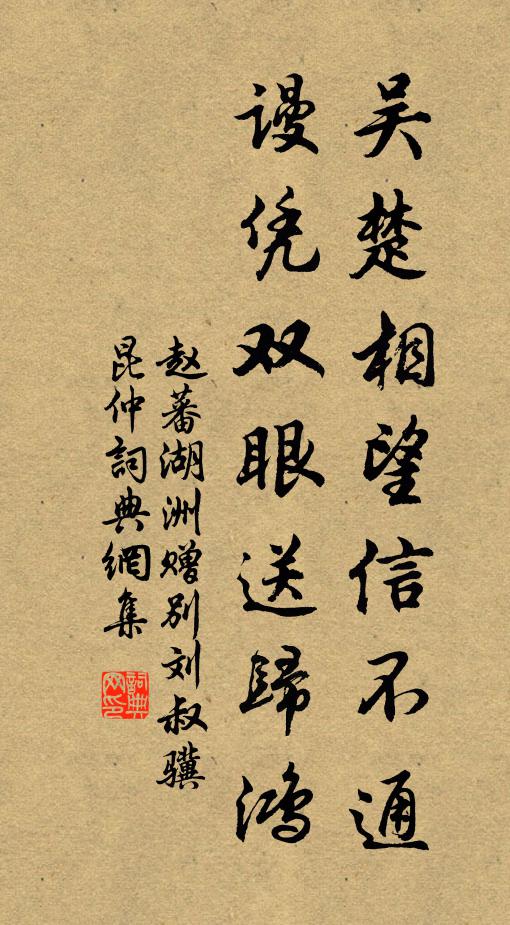 吴楚相望信不通
谩凭双眼送歸鸿
赵蕃湖洲赠别刘叔骥
昆仲詞典網集
詞典
网印